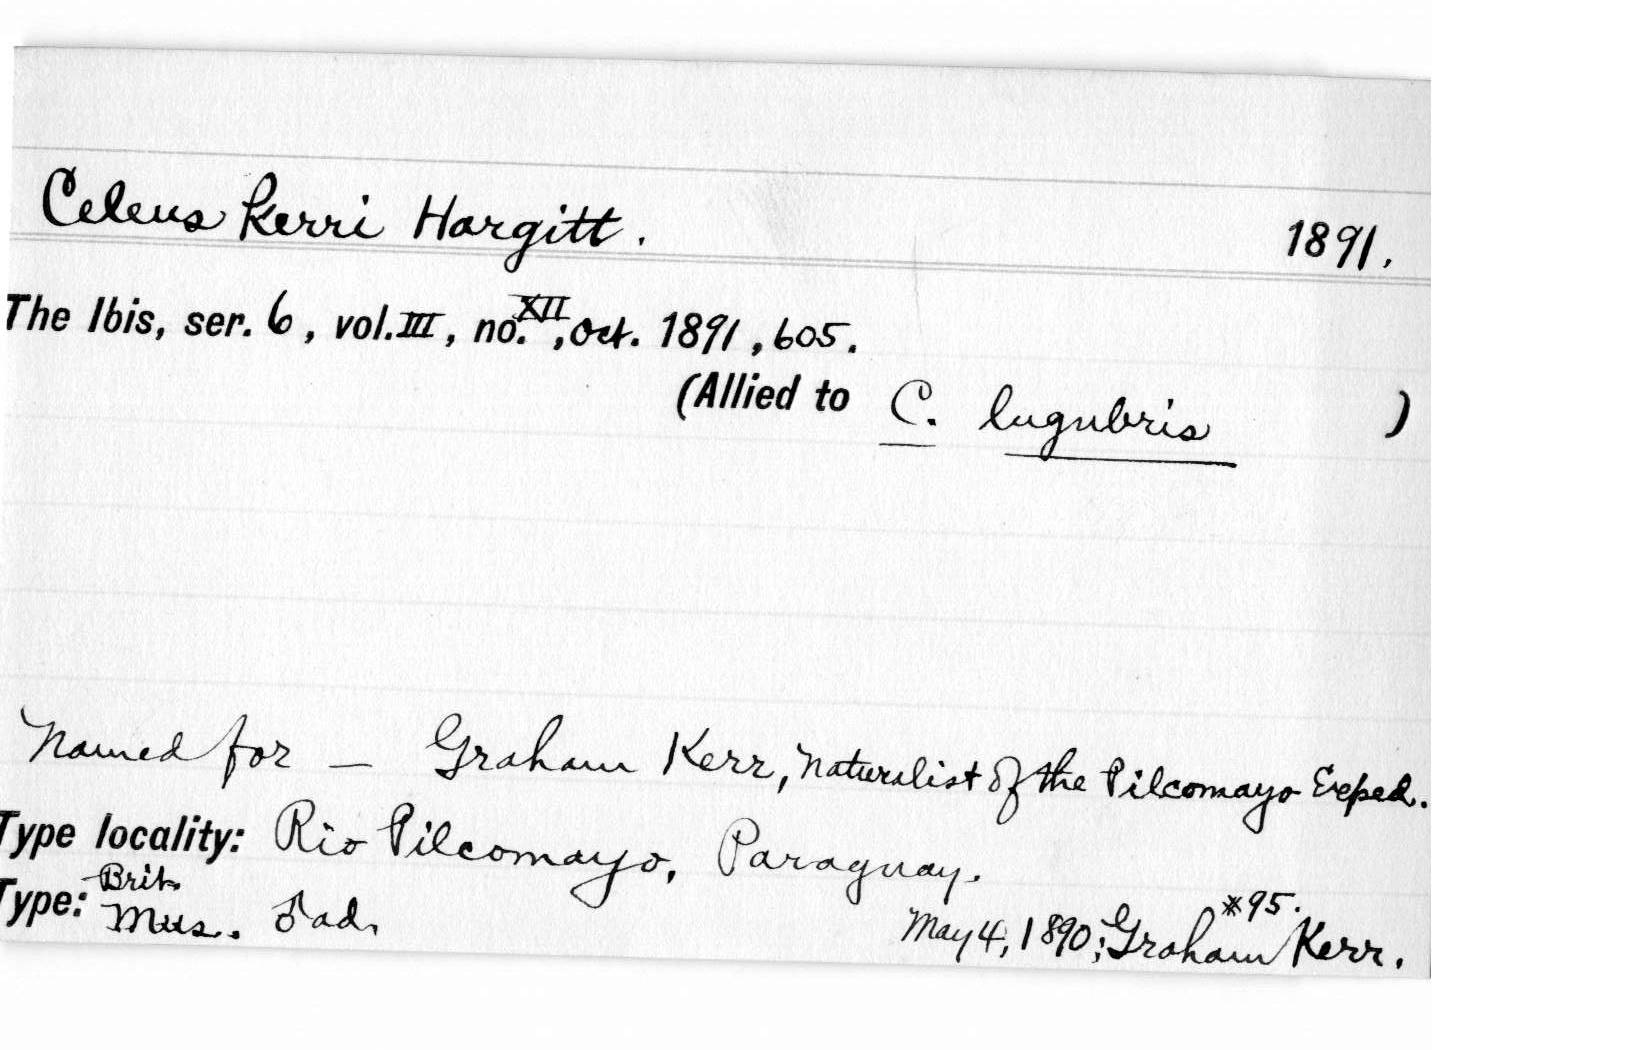 Celeus kerri Hargitt. 1891.
The Ibis, ser. 6, vol. III, no. XII, Oct. 1891, 605.
(Allied to C. lugubris )
Named for — Graham Kerr, naturalist of the Pilcomayo Exped.
Type locality: Rio Pilcomayo, Paraguay.
Type: Brit. Mus. ♂ ad. May 4, 1890; Graham Kerr. #95.